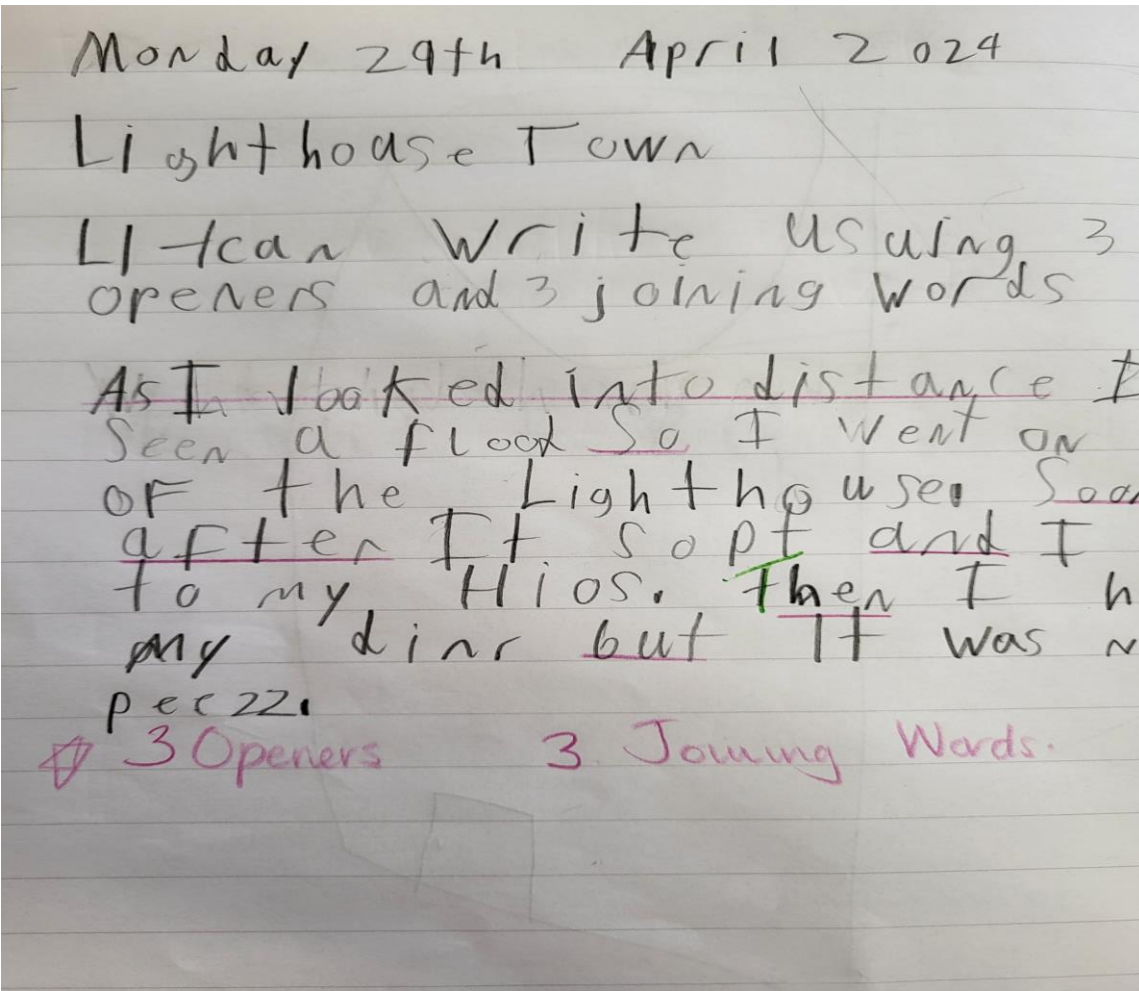 Monday 29th April 2024
Lighthouse Town
LI - I can write usuing 3
openers and 3 joining words
As I looked into distance I
Seen a flood So I went on
of the Lighthouse. Soo
after It sopt and I
to my Hios. Then I h
my dinr but It was n
peezz.
3 Openers 3 Joining Words.